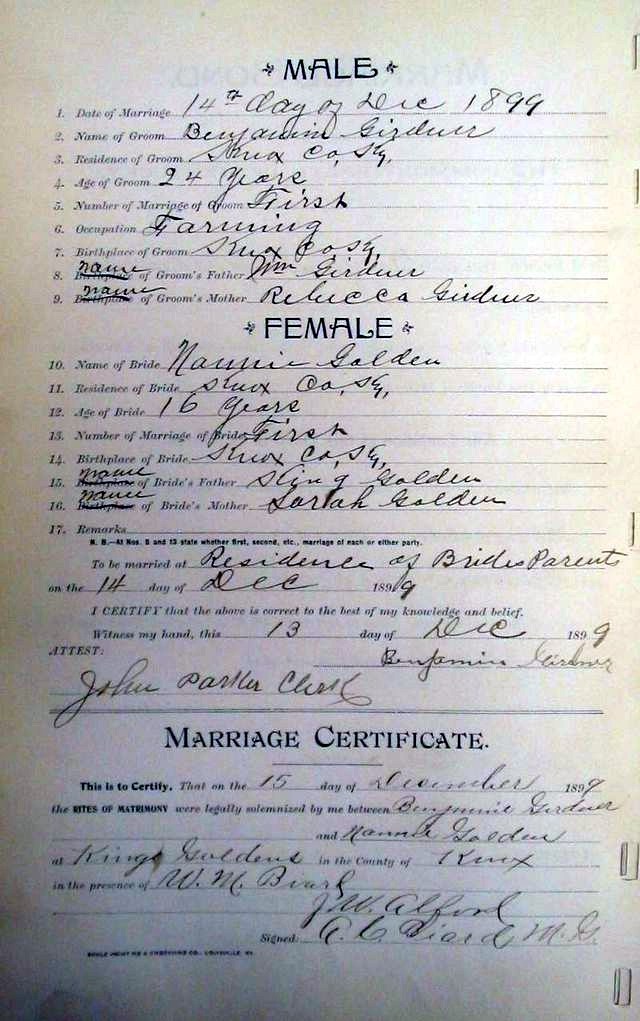 MALE
1. Date of Marriage 14th day of Dec 1899
2. Name of Groom Benjamin Girdner
3. Residence of Groom Knox Co, Ky,
4. Age of Groom 24 Years
5. Number of Marriage of Groom First
6. Occupation Farming
7. Birthplace of Groom Knox Co Ky,
8. Birthplace name of Groom's Father Wm Girdner
9. Birthplace name of Groom's Mother Rebecca Girdner
FEMALE
10. Name of Bride Nannie Golden
11. Residence of Bride Knox Co, Ky,
12. Age of Bride 16 Years
13. Number of Marriage of Bride First
14. Birthplace of Bride Knox Co, Ky,
15. Birthplace name of Bride's Father Golden
16. Birthplace name of Bride's Mother Sarah Golden
17. Remarks
N. B.—At Nos. 5 and 13 state whether first, second, etc., marriage of each or either party.
To be married at Residence of Brides Parents
on the 14 day of Dec 1899
I CERTIFY that the above is correct to the best of my knowledge and belief.
Witness my hand, this 13 day of Dec 1899
ATTEST:
Benjamin Girdner
John Parker Clerk
MARRIAGE CERTIFICATE.
This is to Certify, That on the 15 day of December 1899
the RITES OF MATRIMONY were legally solemnized by me between Benjamine Girdner
and Nannie Golden
at King Goldens in the County of Knox
in the presence of W. M.
J. W. Alford
Signed: M. G.